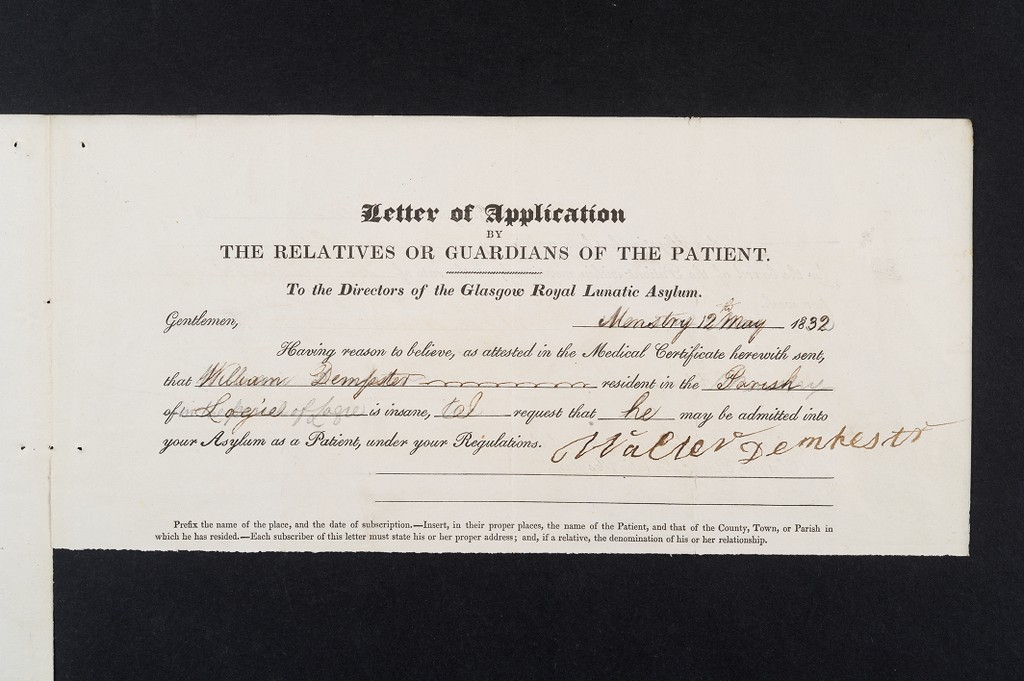 Letter of Application
BY
THE RELATIVES OR GUARDIANS OF THE PATIENT.
To the Directors of the Glasgow Royal Lunatic Asylum.
Gentlemen, Menstry 12th May 1832
Having reason to believe, as attested in the Medical Certificate herewith sent,
that William Dempster resident in the Parish
of Logie is insane, request that he may be admitted into
your Asylum as a Patient, under your Regulations. Walter Dempestr
Prefix the name of the place, and the date of subscription.—Insert, in their proper places, the name of the Patient, and that of the County, Town, or Parish in
which he has resided.—Each subscriber of this letter must state his or her proper address; and, if a relative, the denomination of his or her relationship.